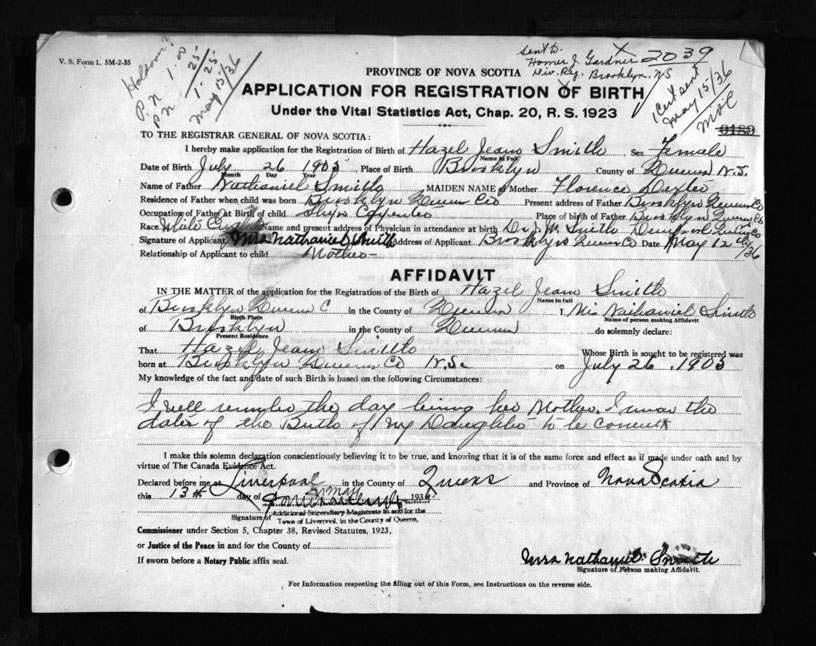 V. S. Form 1. 5M-2-35
P.N. 1.00
P.N. .25
1.25
May 15/36
Sent to
Homer J. Gardner
Div. Reg. Brooklyn, N.S
X 2039
1 Cert sent
May 15/36
0189
PROVINCE OF NOVA SCOTIA
APPLICATION FOR REGISTRATION OF BIRTH
Under the Vital Statistics Act, Chap. 20, R. S. 1923
TO THE REGISTRAR GENERAL OF NOVA SCOTIA:
I hereby make application for the Registration of Birth of Hazel Jean Smith Sex Female
Name in Full
Date of Birth July 26 1903 Place of Birth Brooklyn County of Queens N.S.
Month Day Year
Name of Father Nathaniel Smith MAIDEN NAME of Mother Florence Dexter
Residence of Father when child was born Brooklyn Queens Co Present address of Father Brooklyn Queens Co
Occupation of Father at Birth of child Ships Carpenter Place of birth of Father Brooklyn Queens Co
Race White Name and present address of Physician in attendance at birth Dr. J. W. Smith Queens Co
Signature of Applicant Mrs Nathaniel Smith Address of Applicant Brooklyn Queens Co Date May 12th/36
Relationship of Applicant to child Mother
AFFIDAVIT
IN THE MATTER of the application for the Registration of the Birth of Hazel Jean Smith
Name in full
of Brooklyn Queens C in the County of Queens I, Mrs Nathaniel Smith
Birth Place Name of person making Affidavit
of Brooklyn in the County of Queens do solemnly declare:
Present Residence
That Hazel Jean Smith Whose Birth is sought to be registered was
born at Brooklyn Queens Co N.S. on July 26, 1903
My knowledge of the fact and date of such Birth is based on the following Circumstances:
I well remember the day being her Mother. I swear the
date of the Birth of my Daughter to be correct
I make this solemn declaration conscientiously believing it to be true, and knowing that it is of the same force and effect as if made under oath and by
virtue of The Canada Evidence Act.
Declared before me at Liverpool in the County of Queens and Province of Nova Scotia
this 13th day of May 1936
Signature of Additional Stipendiary Magistrate in and for the
Town of Liverpool, in the County of Queens,
Commissioner under Section 5, Chapter 38, Revised Statutes, 1923,
or Justice of the Peace in and for the County of
If sworn before a Notary Public affix seal.
Mrs Nathaniel Smith
Signature of Person making Affidavit.
For Information respecting the filling out of this Form, see Instructions on the reverse side.